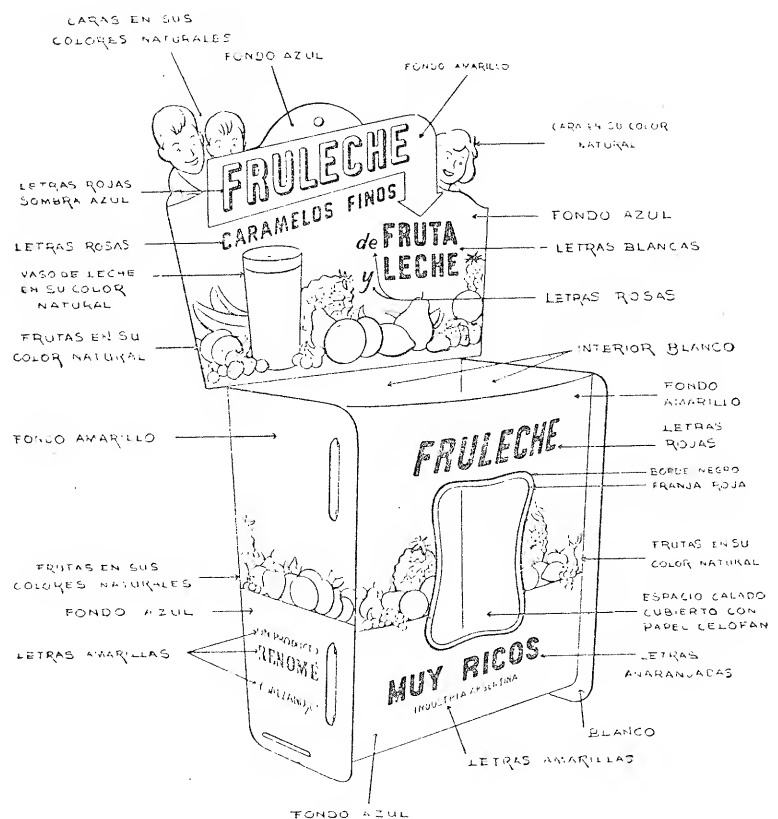 CARAS EN SUS
COLORES NATURALES
FONDO AZUL
FONDO AMARILLO
CARA EN SU COLOR
NATURAL
LETRAS ROJAS
SOMBRA AZUL
FRULECHE
CARAMELOS FINOS
de FRUTA
y LECHE
FONDO AZUL
LETRAS ROSAS
LETRAS BLANCAS
VASO DE LECHE
EN SU COLOR
NATURAL
LETRAS ROSAS
FRUTAS EN SU
COLOR NATURAL
INTERIOR BLANCO
FONDO
AMARILLO
FONDO AMARILLO
LETRAS
ROJAS
FRULECHE
BORDE NEGRO
FRANJA ROJA
FRUTAS EN SU
COLOR NATURAL
FRUTAS EN SUS
COLORES NATURALES
ESPACIO CALADO
CUBIERTO CON
PAPEL CELOFAN
FONDO AZUL
LETRAS AMARILLAS
UN PRODUCTO
RENOMÉ
LETRAS
ANARANJADAS
MUY RICOS
INDUSTRIA ARGENTINA
BLANCO
LETRAS AMARILLAS
FONDO AZUL